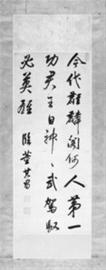 今代麒麟閣何人第一
功君王自神武駕馭
必英雄 董其昌